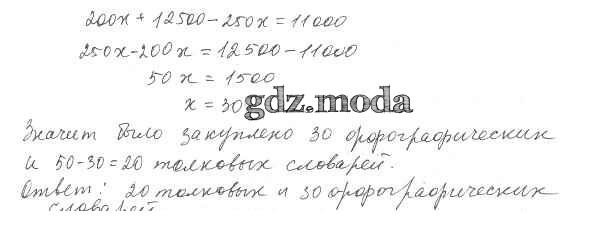 200x + 12500 - 250x = 11000
250x - 200x = 12500 - 11000
50x = 1500
x = 30
gdz.moda
Значит было закуплено 30 орфографических
и 50-30=20 толковых словарей.
Ответ: 20 толковых и 30 орфографических
словарей